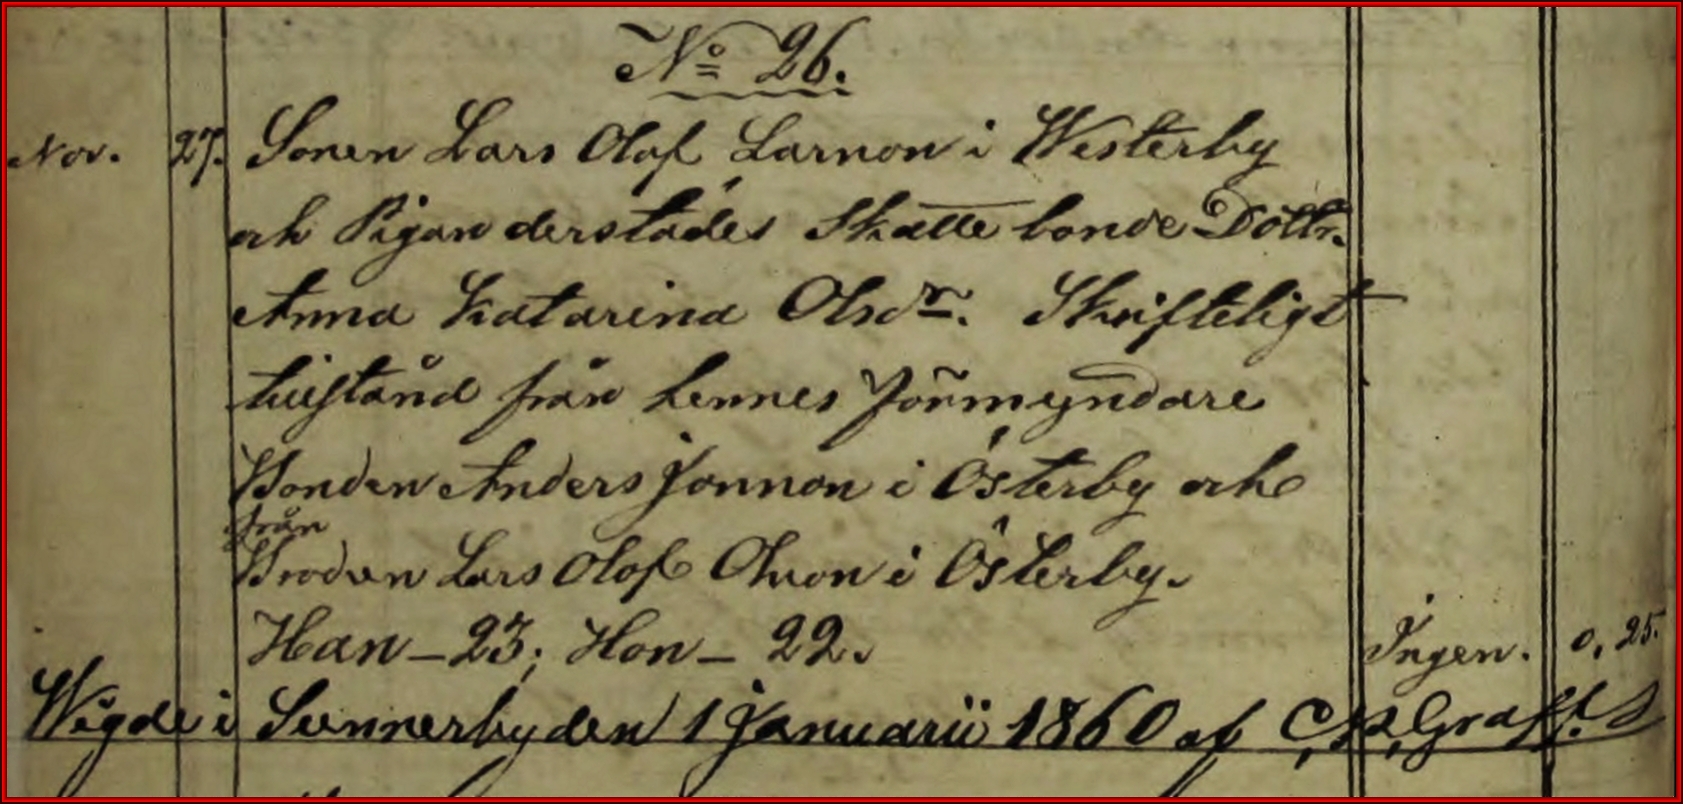 No 26.
Nov. 27. Sonen Lars Olof Larsson i Westerby
och Pigan derstädes Skatte bonde Dottr.
Anna Katarina Olsdr. Skrifteligt
bifstånd från hennes Förmyndare
Bonden Anders Jonsson i Österby och
från
Brodren Lars Olof Olsson i Österby.
Han – 23; Hon – 22. Ingen. 0, 25.
Wigde i Sunnerby den 1 Januarii 1860 af Graff.